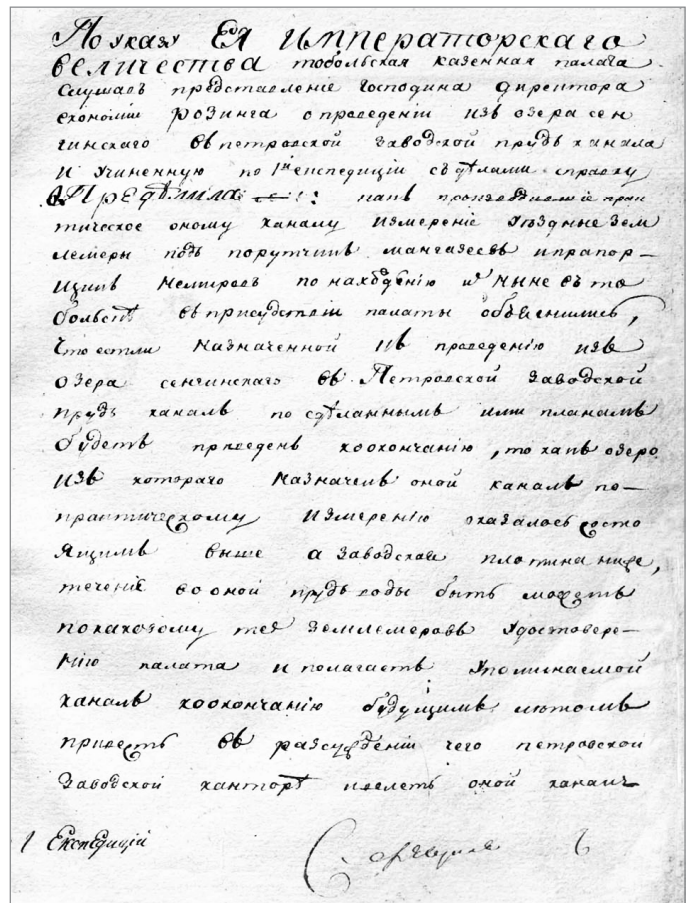 По указу Ея Императорскаго
величества тобольская казенная палата
слушавъ представленіе господина директора
економіи Розинга о проведеніи изъ озера сен
гинскаго въ петровской заводской прудъ канала
и учиненную по 1й експедиціи съ дѣлами справку
Определила: какъ произведшіе прак
тическое оному каналу измереніе уѣздные зем
лемеры подъ порутчикъ мангазеевъ и прапор-
щикъ Немцовъ по нахождению ихъ ныне въ то
больскѣ въ присудствіи палаты объяснились,
Что естли назначенной къ проведению изъ
озера сенгинскаго въ Петровской заводской
прудъ каналъ по сдѣланнымъ ими планамъ
будетъ приведенъ ко окончанію, то какъ озеро
изъ котораго назначенъ оной каналъ по-
практическому измерению оказалось состо
ящимъ выше а заводская плотина ниже,
течение во оной прудъ воды быть можетъ
по каковому тех землемеровъ удостовере-
нию палата и полагаетъ упоминаемой
каналъ ко окончанію будущимъ лѣтомъ
привесть въ разсужденіи чего петровской
заводской канторѣ велеть оной каналъ
1 Експедиціи